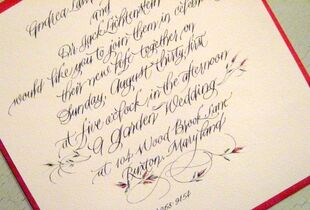 Andrea Lam
and
Dr. Jack Lichtenstein
would like you to join them in celebr
their new life together on
Sunday, August thirty first
at five o'clock in the afternoon
A Garden Wedding
at 104 Wood Brook Lane
Maryland
268-9154